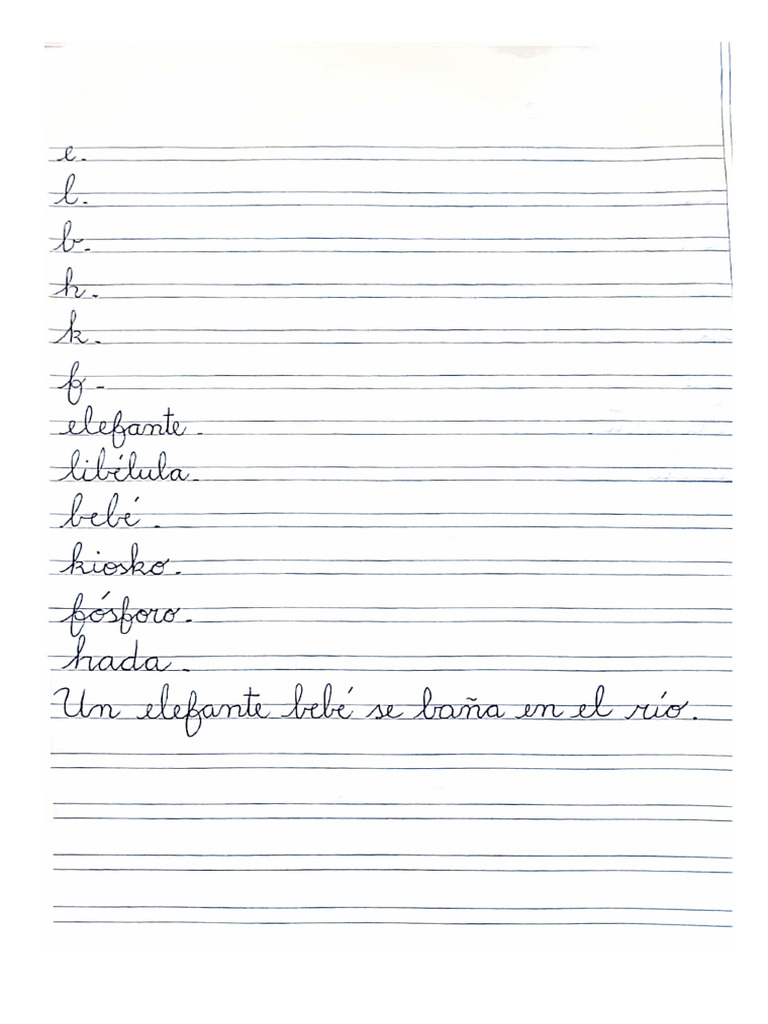 e.
l.
b.
h.
k.
f.
elefante.
libélula.
bebé.
kiosko.
fósforo.
hada.
Un elefante bebé se baña en el río.